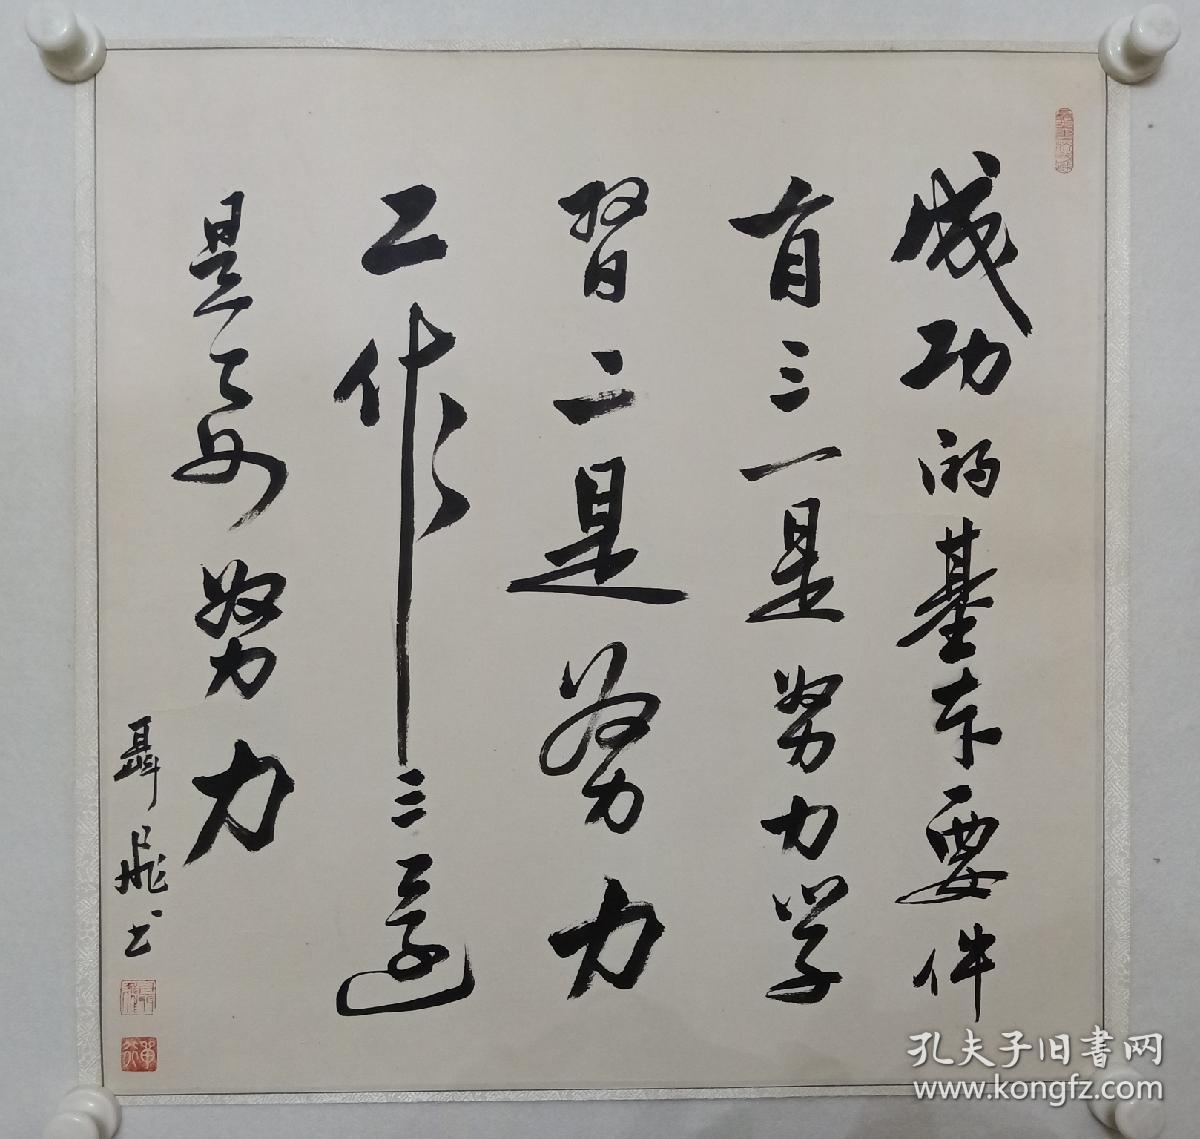 成功的基本要件
有三一是努力学
習二是努力
工作三还
是要努力
聶成书
孔夫子旧書网
www.kongfz.com